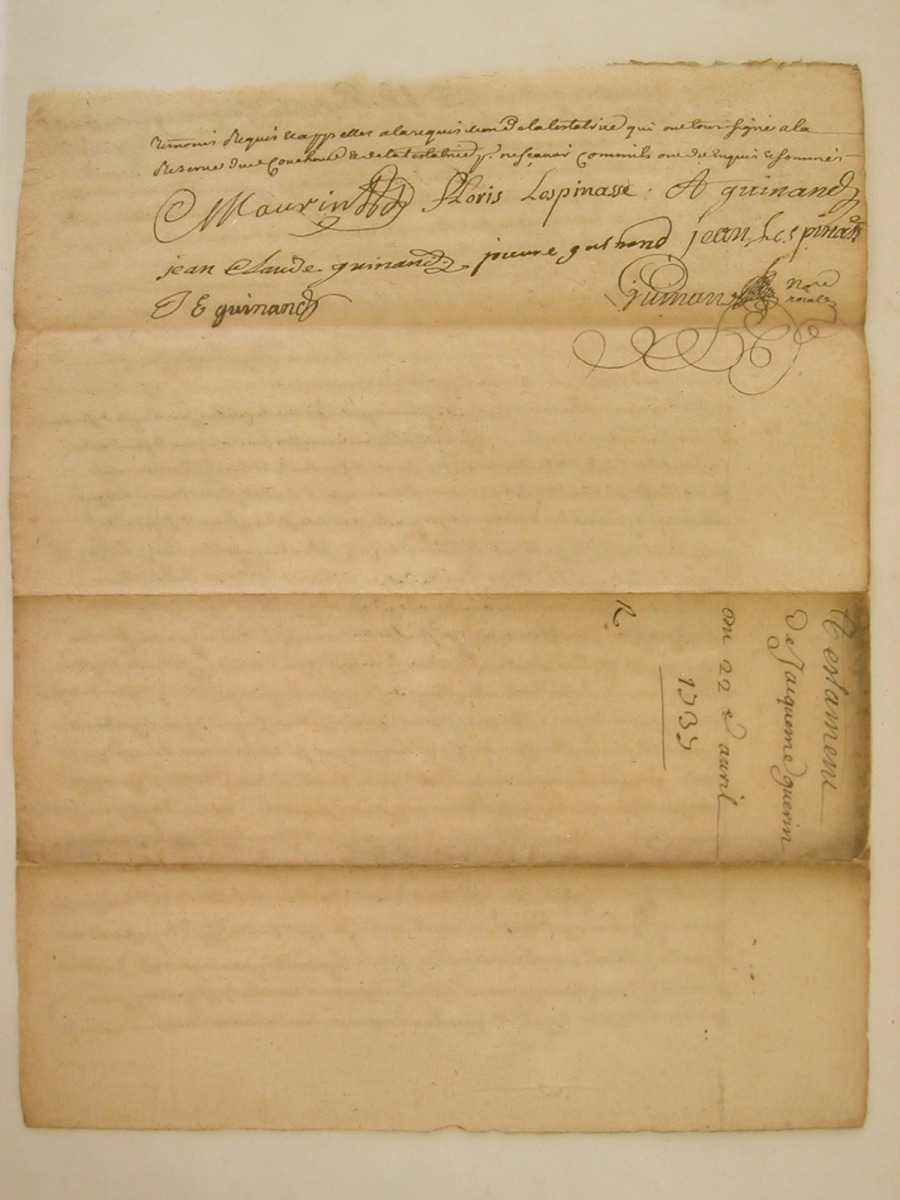 temoins Requis et appelles a la requisition de la testatrice qui ont tous signé a la
Reserve du Couchoud et de la testatrice pr ne sçavoir comm ils ont dit enquis et sommés
Maurin Floris Lespinasse A guinand
jean Claude guinand pierre jean Lespinas
J E guinand guinand Nore roïale
Testament
de Jacqueme guerin
du 22 d avril
1735
R.